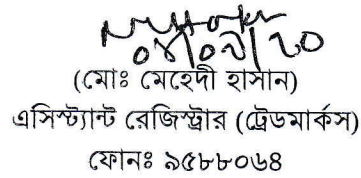 (মোঃ মেহেদী হাসান)
এসিস্ট্যান্ট রেজিস্ট্রার (ট্রেডমার্কস)
ফোনঃ ৯৫৮৮০৬৪